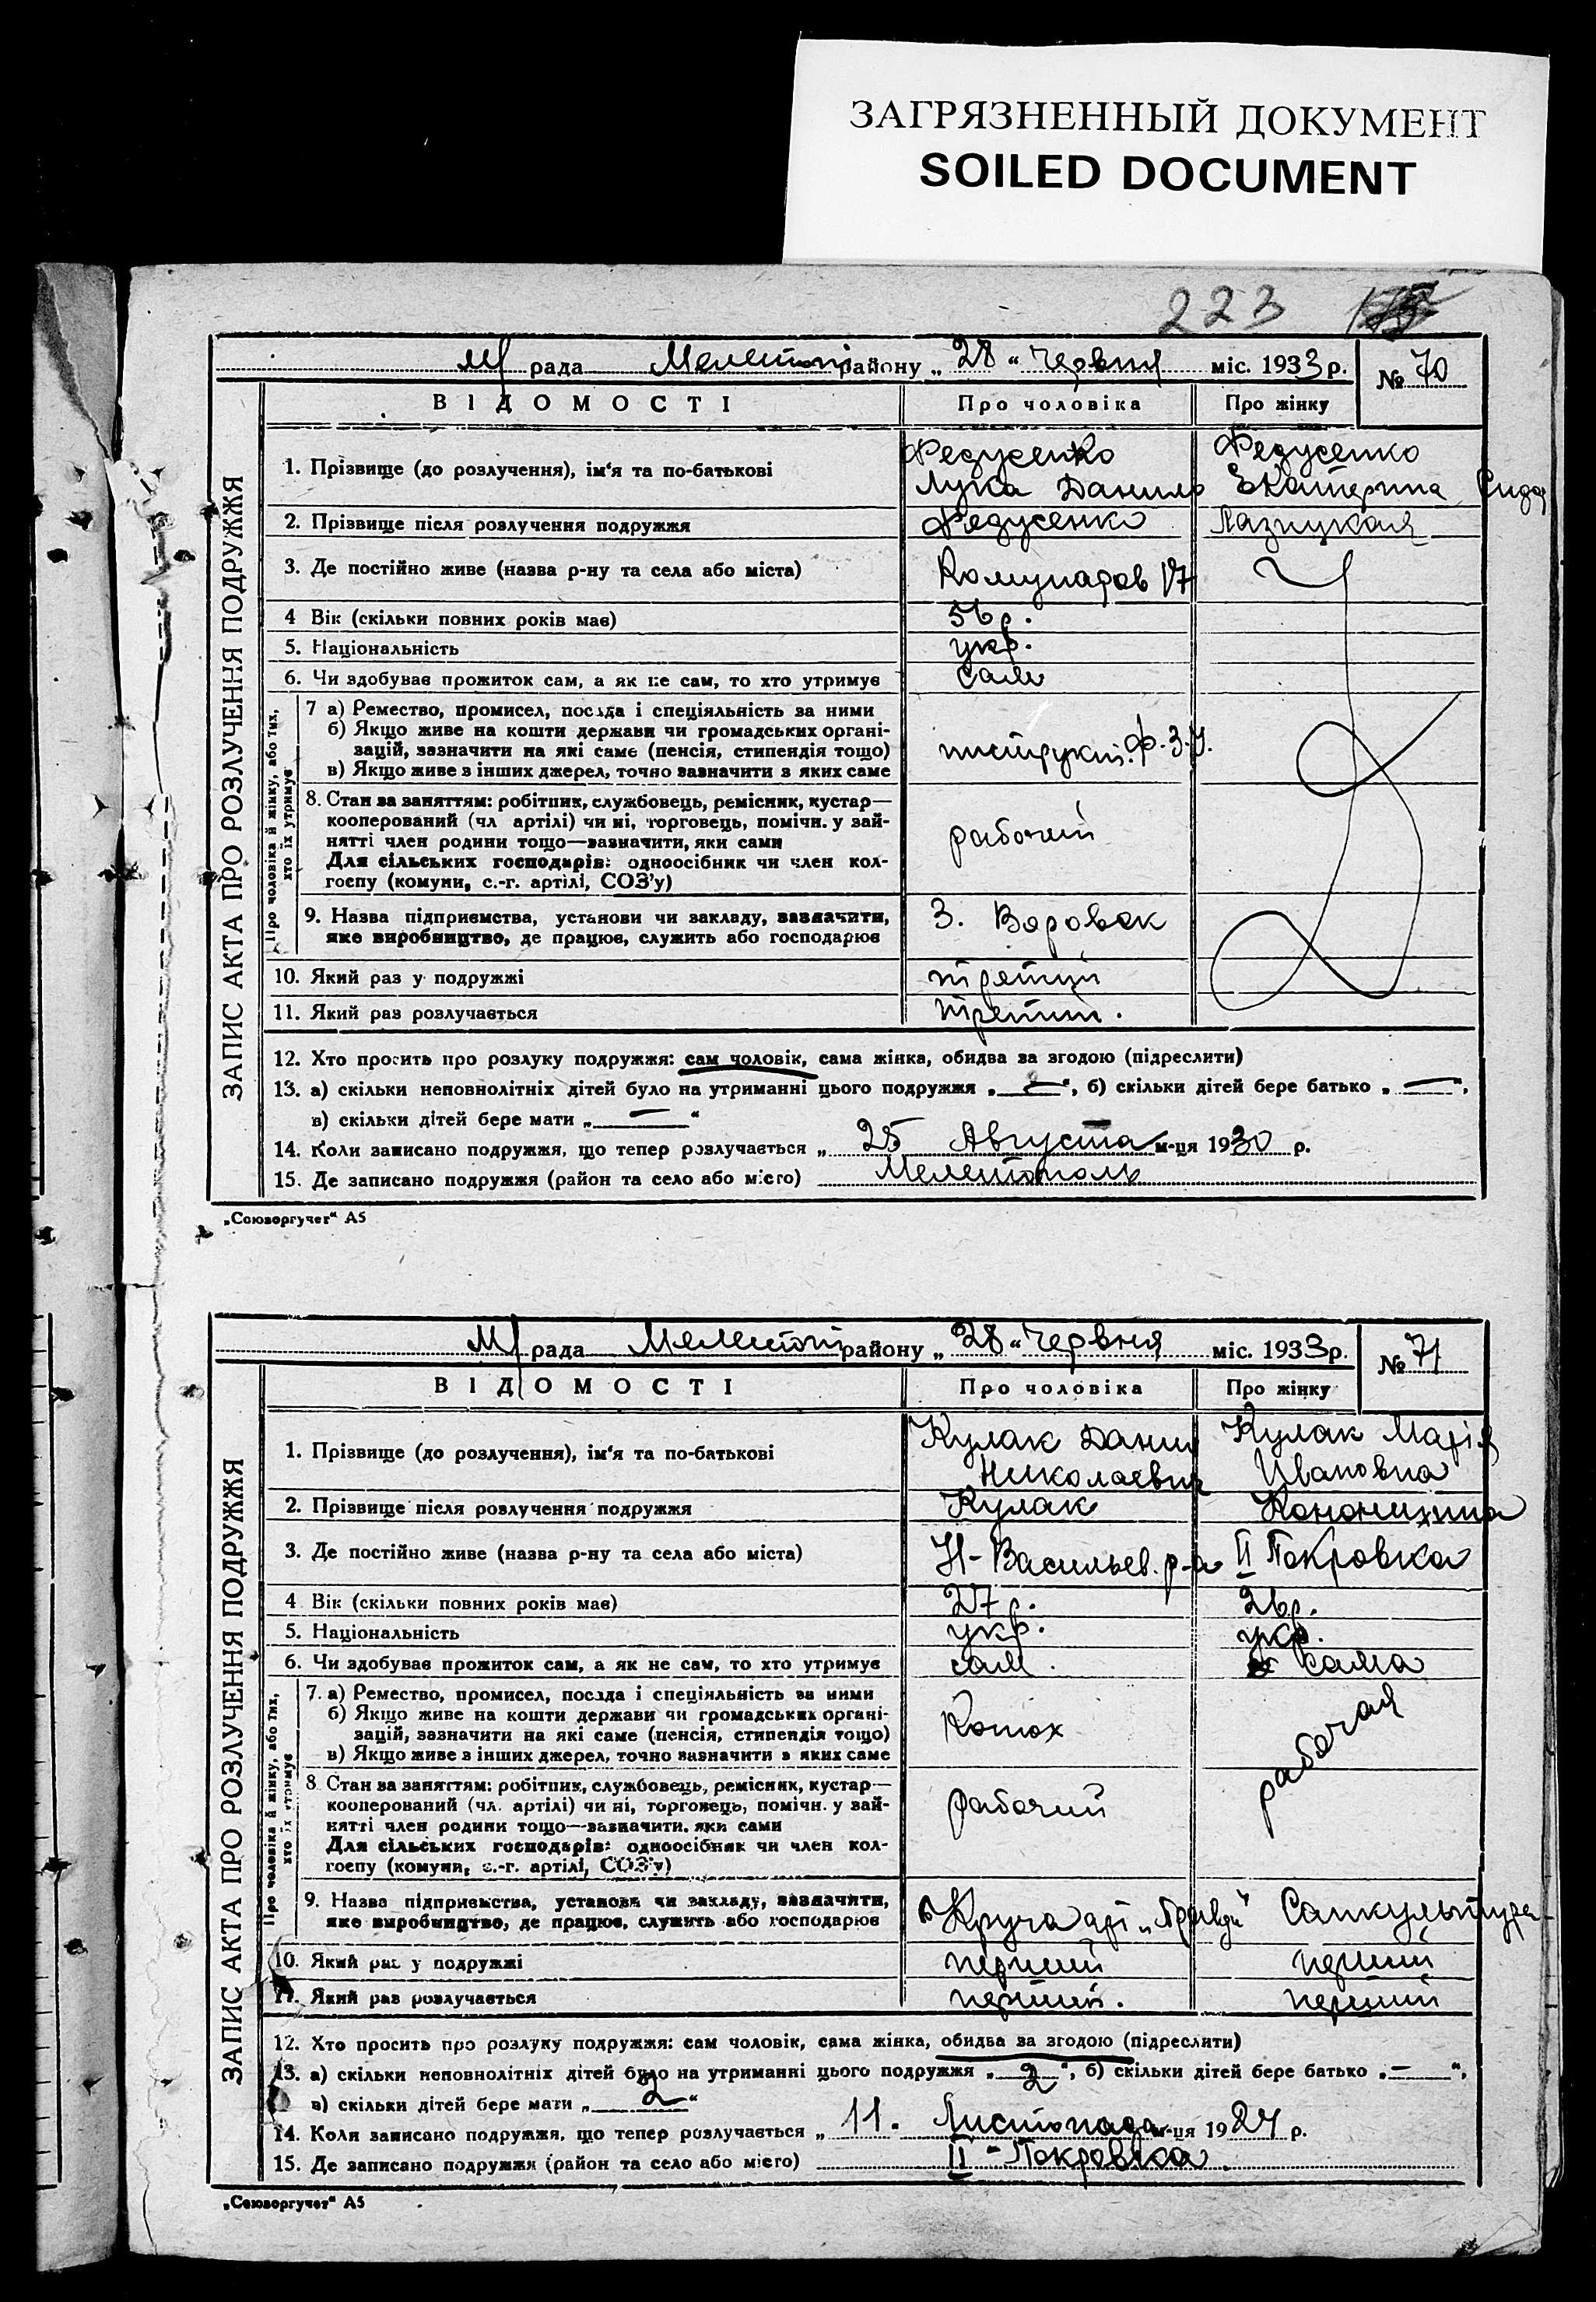 ЗАГРЯЗНЕННЫЙ ДОКУМЕНТ
SOILED DOCUMENT
223
рада Мелитоп району „28“ Червня міс. 1933 р. № 70
ЗАПИС АКТА ПРО РОЗЛУЧЕННЯ ПОДРУЖЖЯ
ВІДОМОСТІ Про чоловіка Про жінку
1. Прізвище (до розлучення), ім'я та по-батькові Федусенко Федусенко
Лука Данило Екатерина Сидор
2. Прізвище після розлучення подружжя Федусенко
3. Де постійно живе (назва р-ну та села або міста) Комунаров 17
4 Вік (скільки повних років має) 56 р.
5. Національність укр.
6. Чи здобуває прожиток сам, а як не сам, то хто утримує сам
Про чоловіка й жінку, або тих, хто їх утримує
7 а) Ремество, промисел, посада і спеціяльність за ними
б) Якщо живе на кошти держави чи громадських органі-
зацій, зазначити на які саме (пенсія, стипендія тощо) инструкт. Ф.З.У.
в) Якщо живе з інших джерел, точно зазначити з яких саме
8. Стан за заняттям: робітник, службовець, ремісник, кустар—
кооперований (чл артілі) чи ні, торговець, помічн. у зай-
нятті член родини тощо—зазначити, яки сами рабочий
Для сільських господарів: одноосібник чи член кол-
госпу (комуни, с.-г. артілі, СОЗ'у)
9. Назва підприємства, установи чи закладу, зазначити, З. Воровск
яке виробництво, де працює, служить або господарює
10. Який раз у подружжі третий
11. Який раз розлучається третий.
12. Хто просить про розлуку подружжя: сам чоловік, сама жінка, обидва за згодою (підреслити)
13. а) скільки неповнолітніх дітей було на утриманні цього подружжя „—“, б) скільки дітей бере батько „—“,
в) скільки дітей бере мати „—“
14. Коли записано подружжя, що тепер розлучається „25 Августа м-ця 1930 р.
15. Де записано подружжя (район та село або місто) Мелитополь
„Союзоргучет“ А5
рада Мелитоп району „28“ Червня міс. 1933 р. № 71
ЗАПИС АКТА ПРО РОЗЛУЧЕННЯ ПОДРУЖЖЯ
ВІДОМОСТІ Про чоловіка Про жінку
1. Прізвище (до розлучення), ім'я та по-батькові Кулак Данил Кулак Марія
Николаевич Ивановна
2. Прізвище після розлучення подружжя Кулак Кононихина
3. Де постійно живе (назва р-ну та села або міста) Н-Васильев. р-а II Покровка
4 Вік (скільки повних років має) 27 р. 26 р.
5. Національність укр. укр.
6. Чи здобуває прожиток сам, а як не сам, то хто утримує сам. сама
Про чоловіка й жінку, або тих, хто їх утримує
7. а) Ремество, промисел, посада і спеціяльність за ними
б) Якщо живе на кошти держави чи громадських органі- Конюх рабочая
зацій, зазначити на які саме (пенсія, стипендія тощо)
в) Якщо живе з інших джерел, точно зазначити з яких саме
8 Стан за заняттям: робітник, службовець, ремісник, кустар—
кооперований (чл. артілі) чи ні, торговець, помічн. у зай- рабочий
нятті член родини тощо—зазначити, яки сами
Для сільських господарів: одноосібник чи член кол-
госпу (комуни, с.-г. артілі, СОЗ'у)
9. Назва підприємства, установи чи закладу, зазначити, „Правди“ Санкультура
яке виробництво, де працює, служить або господарює
10. Який раз у подружжі перший перший
11. Який раз розлучається перший. перший
12. Хто просить про розлуку подружжя: сам чоловік, сама жінка, обидва за згодою (підреслити)
13. а) скільки неповнолітніх дітей було на утриманні цього подружжя „2“, б) скільки дітей бере батько „—“,
в) скільки дітей бере мати „2“
14. Коли записано подружжя, що тепер розлучається „11. Листопада м-ця 1927 р.
15. Де записано подружжя (район та село або місто) II-Покровка.
„Союзоргучет“ А5